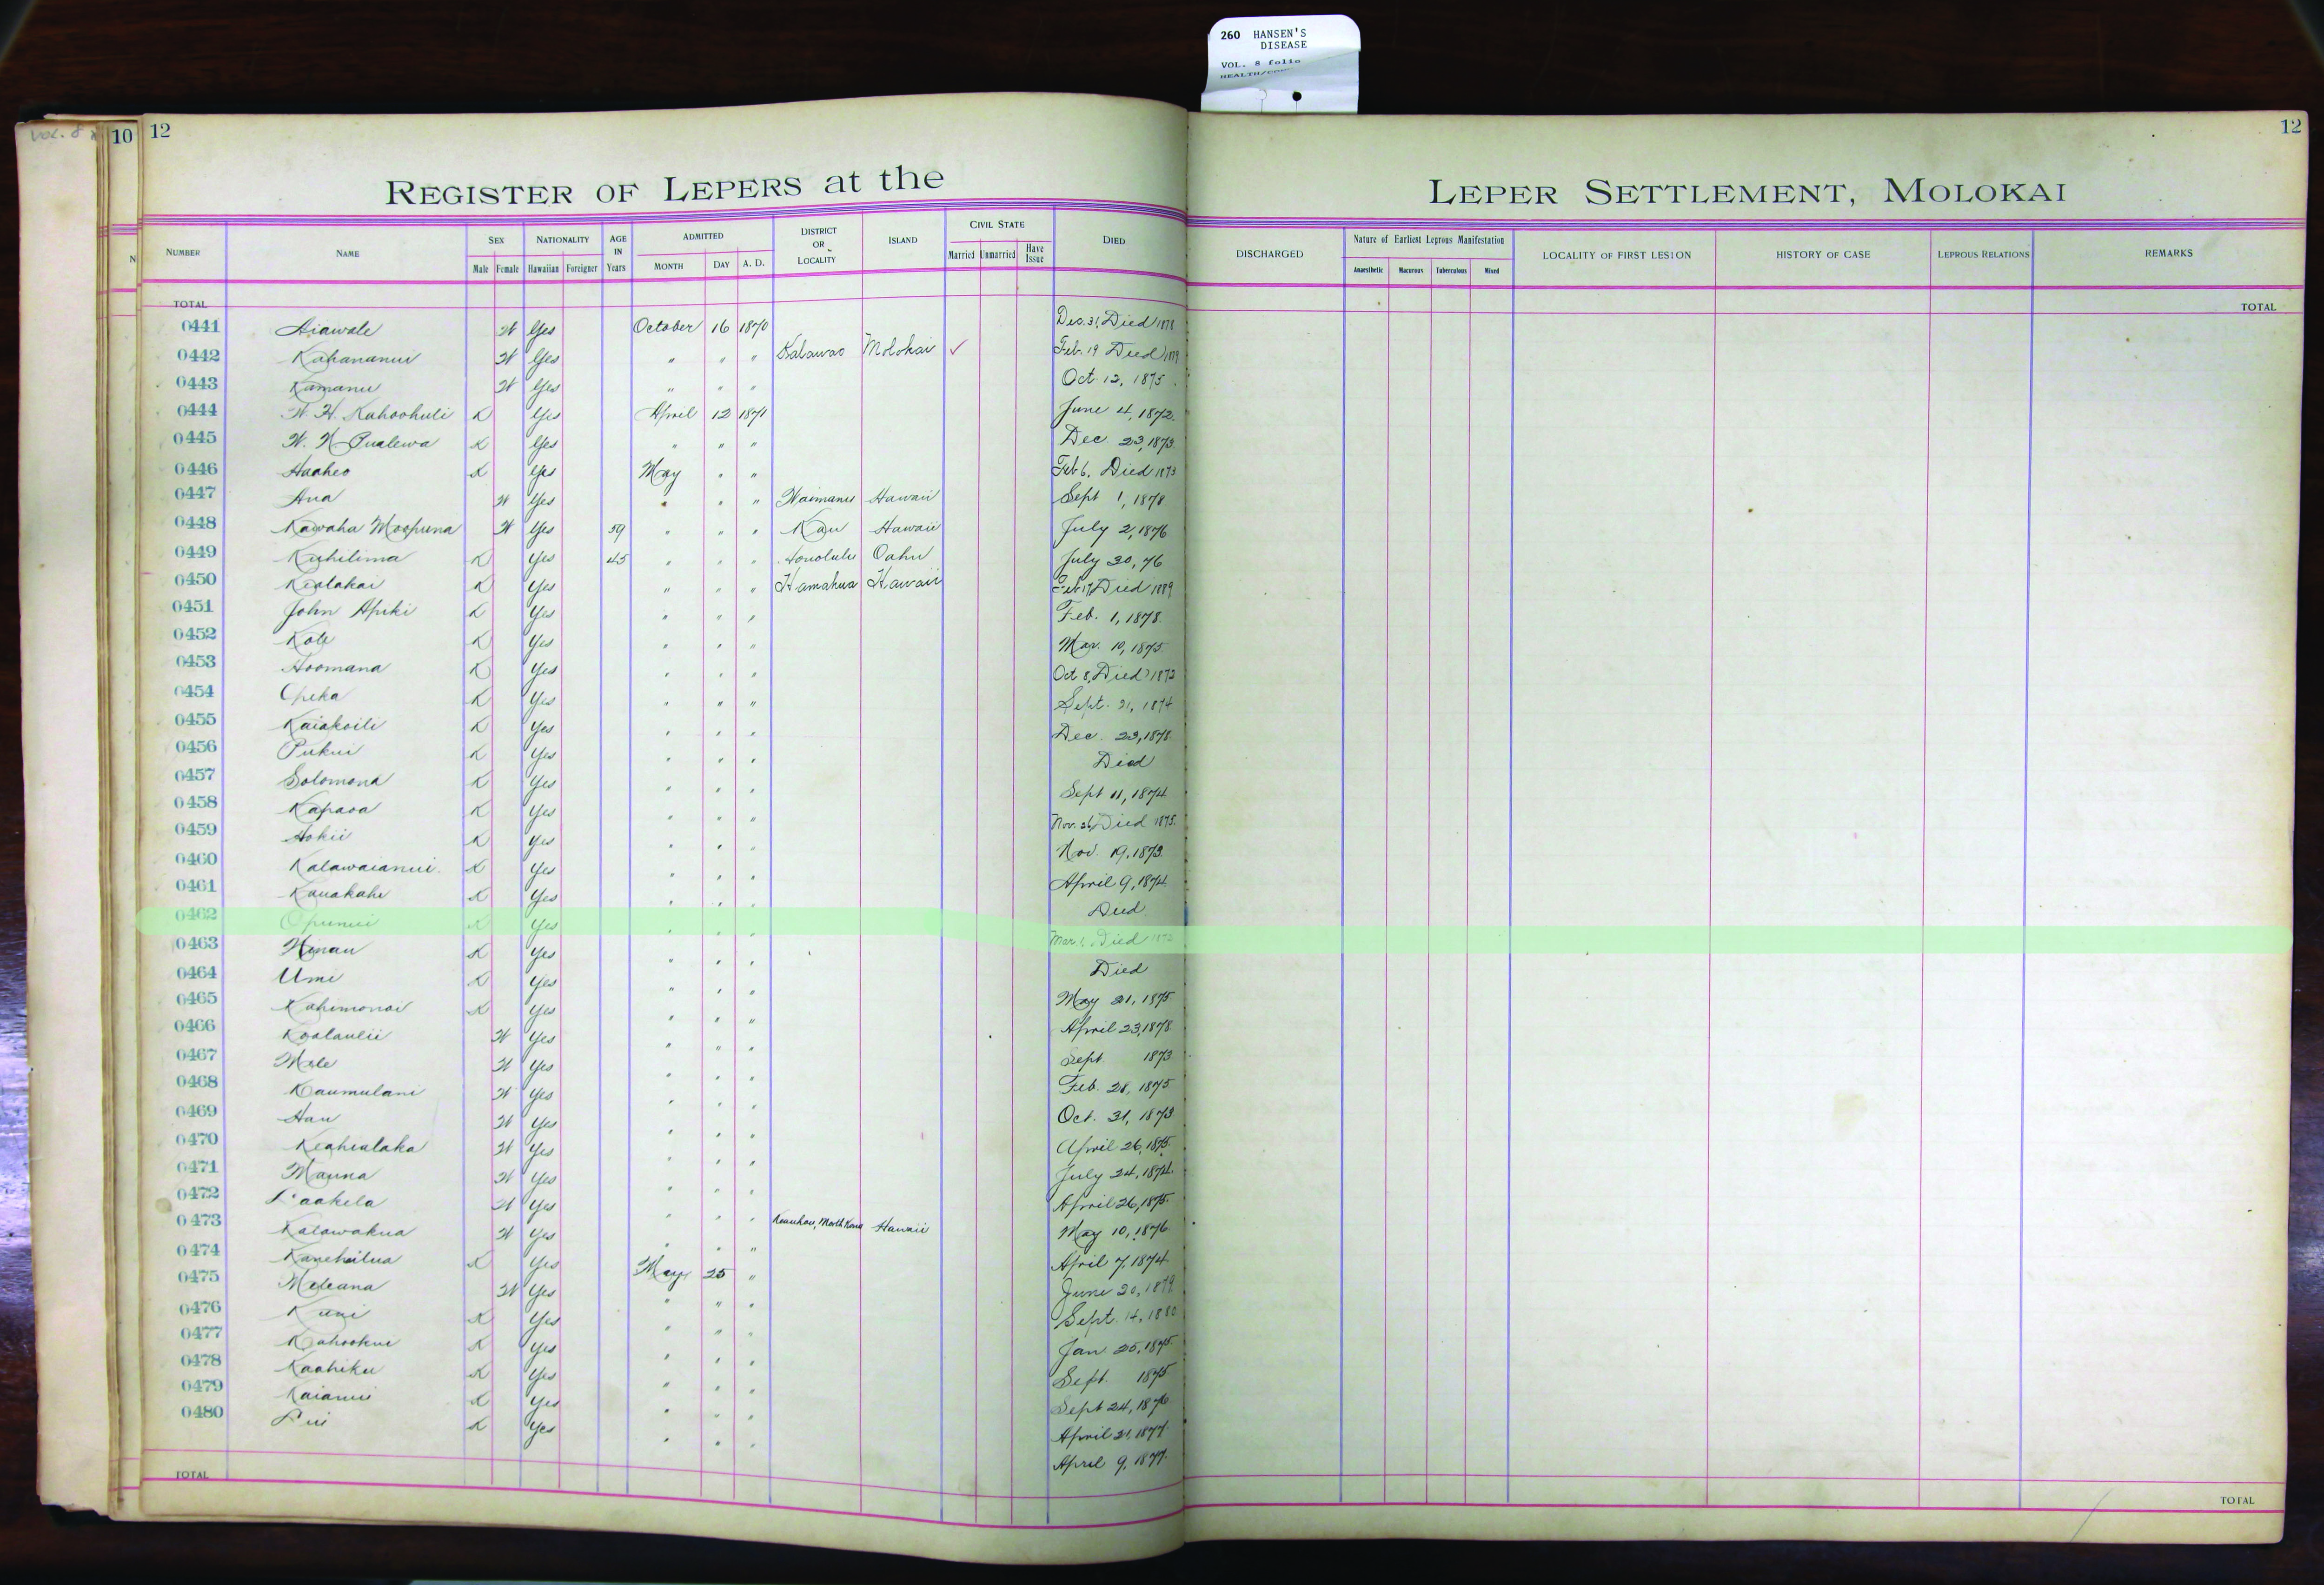 260 HANSEN'S
DISEASE
VOL. 8 folio
VOL. 8
10 12 12
REGISTER OF LEPERS at the LEPER SETTLEMENT, MOLOKAI
NUMBER NAME SEX NATIONALITY AGE IN Years ADMITTED DISTRICT OR LOCALITY ISLAND CIVIL STATE DIED DISCHARGED Nature of Earliest Leprous Manifestation LOCALITY OF FIRST LESION HISTORY OF CASE LEPROUS RELATIONS REMARKS
Male Female Hawaiian Foreigner MONTH DAY A. D. Married Unmarried Have Issue Anaesthetic Macurous Tuberculous Mixed
TOTAL TOTAL
0441 Aiawale W Yes October 16 1870 Dec. 31, Died 1878
0442 Kahananui W Yes " " " Kalawao Molokai ✓ Feb. 19 Died 1879
0443 Kamanu W Yes " " " Oct. 12, 1875
0444 W. H. Kahoohuli K Yes April 12 1871 June 4, 1872.
0445 W. N. Pualewa K Yes " " " Dec. 23, 1873.
0446 Haaheo K Yes May " " Feb 6. Died 1873
0447 Ana W Yes " " " Waimanu Hawaii Sept 1, 1878
0448 Kawaha Moopuna W Yes 59 " " " Kau Hawaii July 2, 1876
0449 Kuhilima K Yes 45 " " " Honolulu Oahu July 30, 76
0450 Kealakai K Yes " " " Hamakua Hawaii Feb 17, Died 1889
0451 John Apiki K Yes " " " Feb. 1, 1878.
0452 Kole K Yes " " " Mar. 10, 1875.
0453 Hoomana K Yes " " " Oct 8, Died 1872
0454 Opeka K Yes " " " Sept. 21, 1874
0455 Kaiakoili K Yes " " " Dec. 23, 1878.
0456 Pukui K Yes " " " Died
0457 Solomona K Yes " " " Sept 11, 1874
0458 Kapaoa K Yes " " " Nov. 26, Died 1875.
0459 Hokii K Yes " " " Nov. 19, 1873.
0460 Kalawaianui K Yes " " " April 9, 1874
0461 Kauakahi K Yes " " " Died
0462 Opunui K Yes " " " Mar. 1. Died 1872
0463 Hinau K Yes " " " Died
0464 Umi K Yes " " " May 21, 1875
0465 Kahimonoi K Yes " " " April 23, 1878.
0466 Koolaulii W Yes " " " Sept 1873
0467 Mele W Yes " " " Feb. 28, 1875.
0468 Kaumulani W Yes " " " Oct. 31, 1873
0469 Hau W Yes " " " April 26, 1875.
0470 Keahialaka W Yes " " " July 24, 1874.
0471 Mauna W Yes " " " April 26, 1875.
0472 Laakela W Yes " " " Keauhou, North Kona Hawaii May 10, 1876
0473 Kalawakua W Yes " " " April 7, 1874
0474 Kanehailua K Yes May 25 " June 20, 1879
0475 Meleana W Yes " " " Sept. 14, 1880
0476 Kuni K Yes " " " Jan. 25, 1875.
0477 Kahookui K Yes " " " Sept. 1875
0478 Kaahiku K Yes " " " Sept 24, 1876
0479 Kaianui K Yes " " " April 21, 1877.
0480 Lui K Yes " " " April 9, 1877.
TOTAL TOTAL